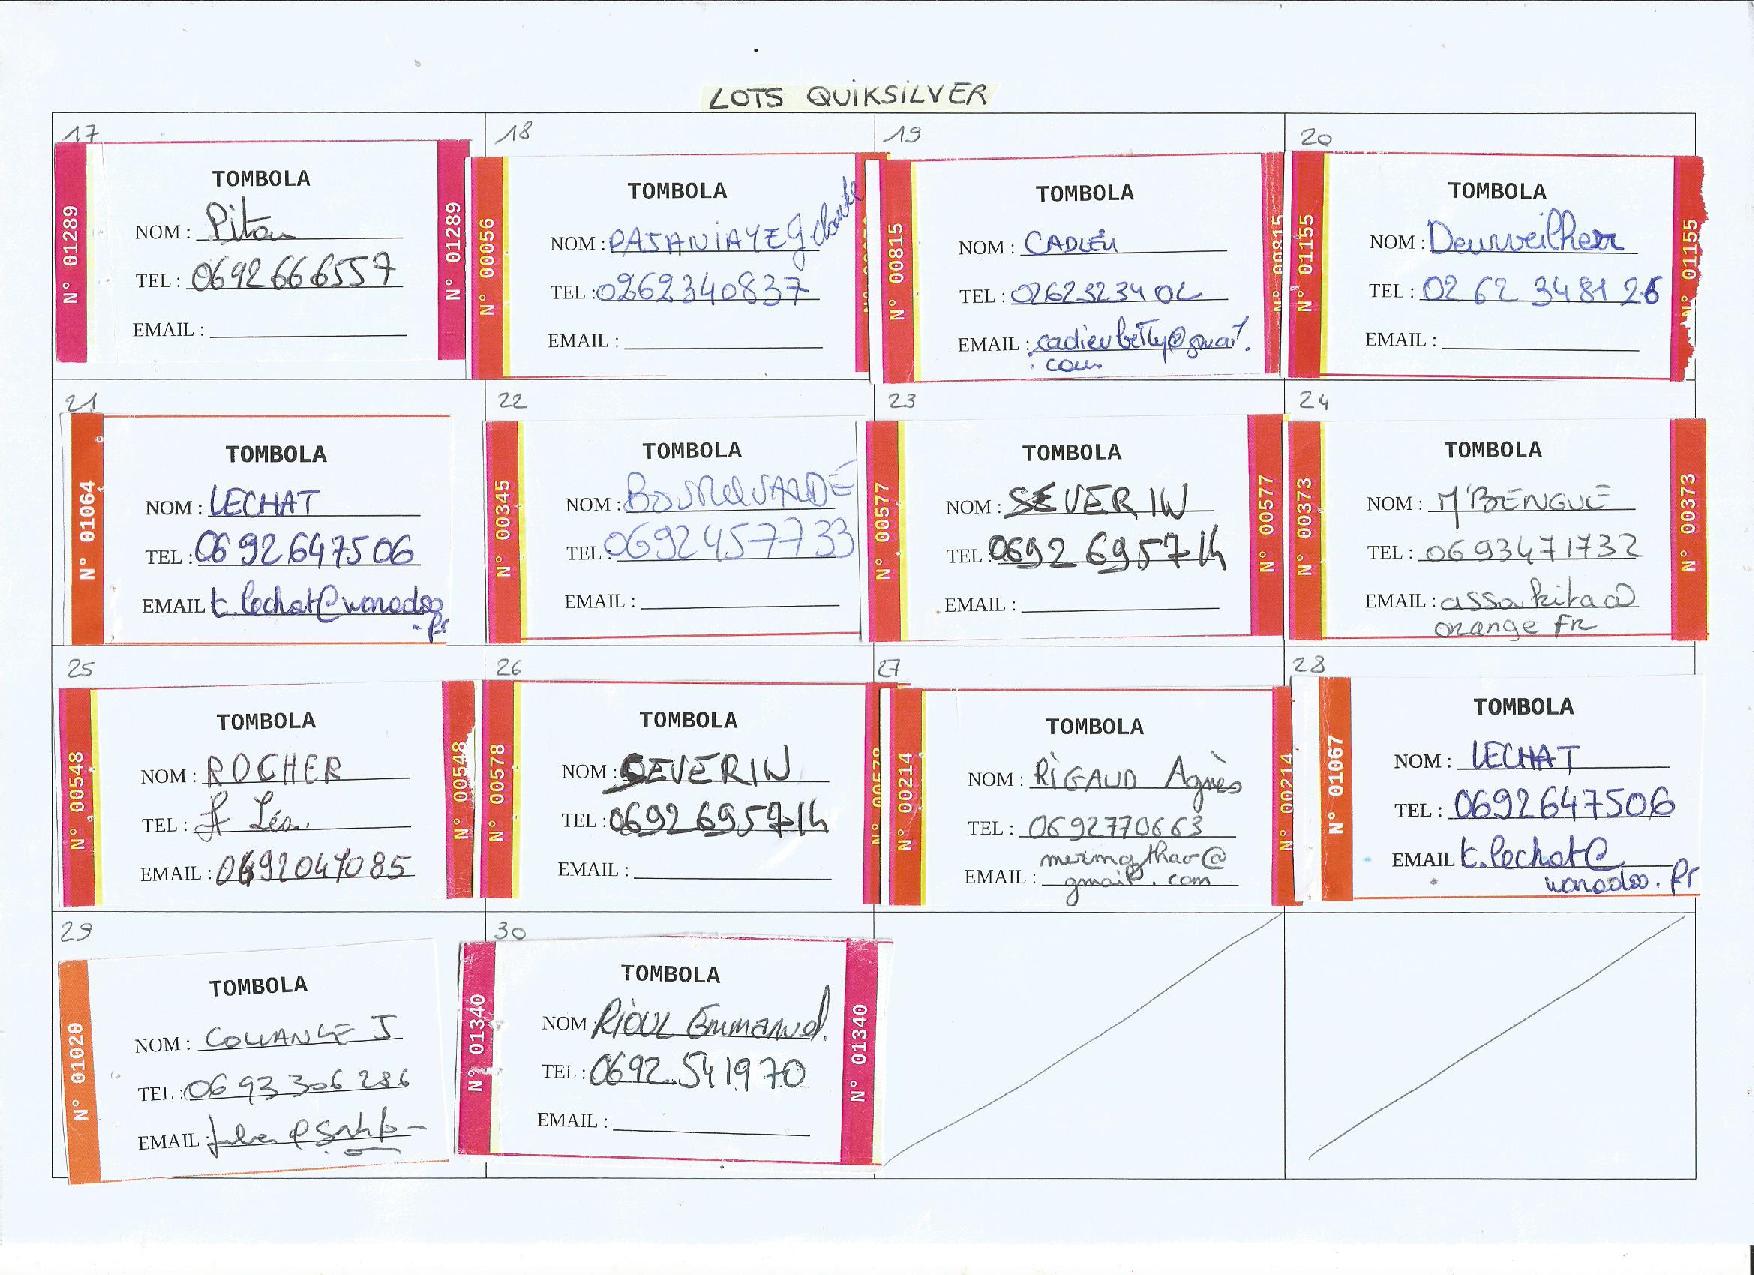 LOTS QUIKSILVER
17
N° 01289
TOMBOLA
NOM : Pitou
TEL : 0692666557
EMAIL :
N° 01289
18
N° 00056
TOMBOLA
NOM : PAJANIAYE g
TEL : 0262340837
EMAIL :
19
N° 00815
TOMBOLA
NOM : CADIEU
TEL : 02623234
EMAIL : cadieubetty@gmail.
com
N° 00815
20
N° 01155
TOMBOLA
NOM : Deurweilher
TEL : 02 62 348126
EMAIL :
N° 01155
21
N° 01064
TOMBOLA
NOM : LECHAT
TEL : 0692647506
EMAIL t.lechat@wanadoo
.fr
22
N° 00345
TOMBOLA
NOM :
TEL : 0692457733
EMAIL :
23
N° 00577
TOMBOLA
NOM : SEVERIN
TEL : 0692695714
EMAIL :
N° 00577
24
N° 00373
TOMBOLA
NOM : M'BENGUE
TEL : 0693471732
EMAIL : assakita@
orange fr
N° 00373
25
N° 00548
TOMBOLA
NOM : ROCHER
TEL : St Leu
EMAIL : 0692047085
N° 00548
26
N° 00578
TOMBOLA
NOM : SEVERIN
TEL : 0692695714
EMAIL :
N° 00578
27
N° 00214
TOMBOLA
NOM : RIGAUD Agnès
TEL : 0692770663
merimathao@
EMAIL : gmail.com
N° 00214
28
N° 01067
TOMBOLA
NOM : LECHAT
TEL : 0692647506
EMAIL t.lechat@
wanadoo.fr
29
N° 01020
TOMBOLA
NOM : COLLANGE J
TEL : 0693 306 286
EMAIL :
30
N° 01340
TOMBOLA
NOM : RIOUL Emmanuel
TEL : 0692.541970
EMAIL :
N° 01340